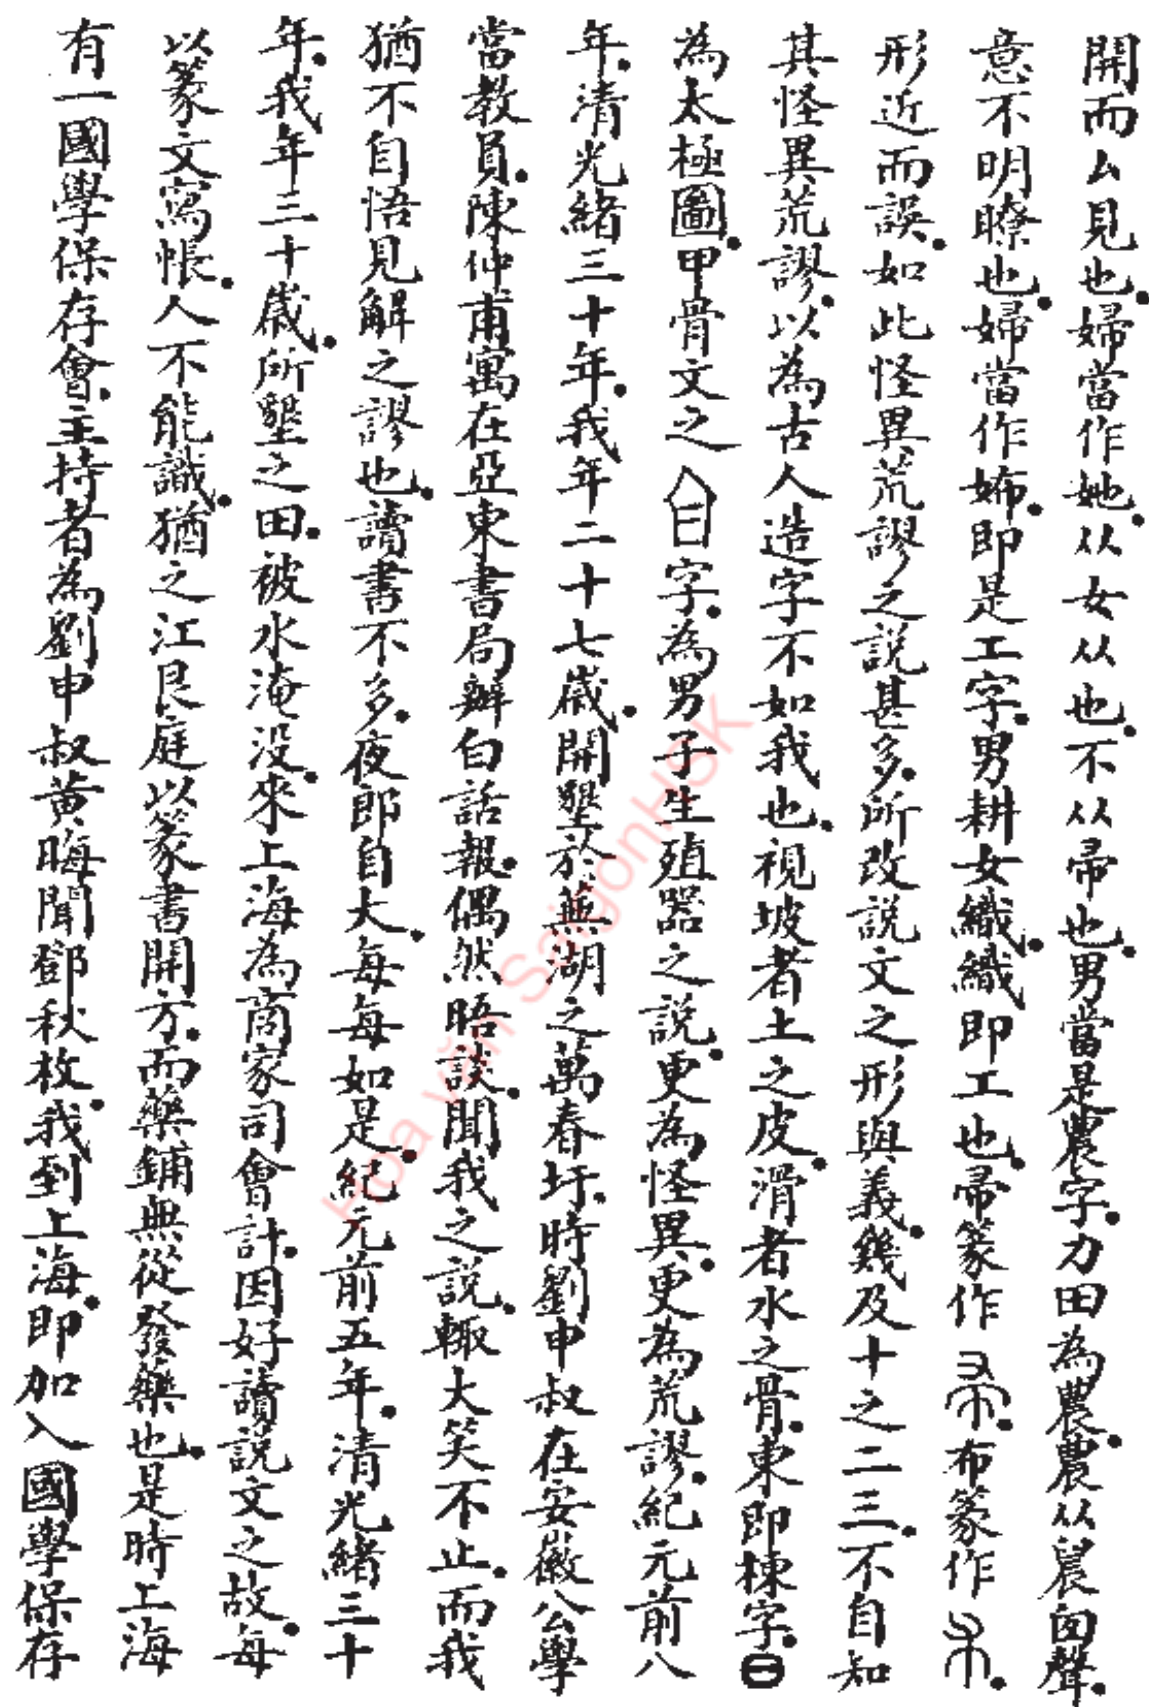 開而厶見也婦當作她从女从也不从帚也男當是農字力田為農農从䢅囪聲
意不明瞭也婦當作㛍即是工字男耕女織織即工也帚篆作布篆作
形近而誤如此怪異荒謬之說甚多所改說文之形與義幾及十之二三不自知
其怪異荒謬以為古人造字不如我也視坡者土之皮滑者水之骨東即棟字
為太極圖甲骨文之字為男子生殖器之說更為怪異更為荒謬紀元前八
年清光緒三十年我年二十七歲開墾於蕪湖之萬春圩時劉申叔在安徽公學
當教員陳仲甫寓在亞東書局辦白話報偶然晤談聞我之說輒大笑不止而我
猶不自悟見解之謬也讀書不多夜郎自大每每如是紀元前五年清光緒三十
年我年三十歲所墾之田被水淹沒來上海為商家司會計因好讀說文之故每
以篆文寫帳人不能識猶之江艮庭以篆書開方而藥鋪無從發藥也是時上海
有一國學保存會主持者為劉申叔黃晦聞鄧秋枚我到上海即加入國學保存
Hoa văn SaigonHSK